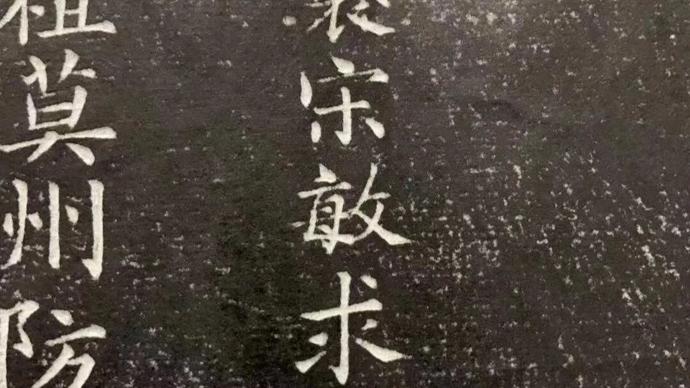 裴宋敏求
祖莫州防